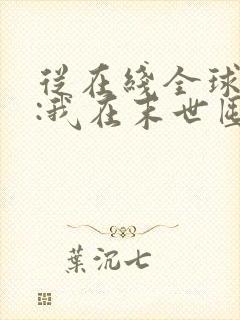 從在綫全球
:我在末世囤
葉沉七